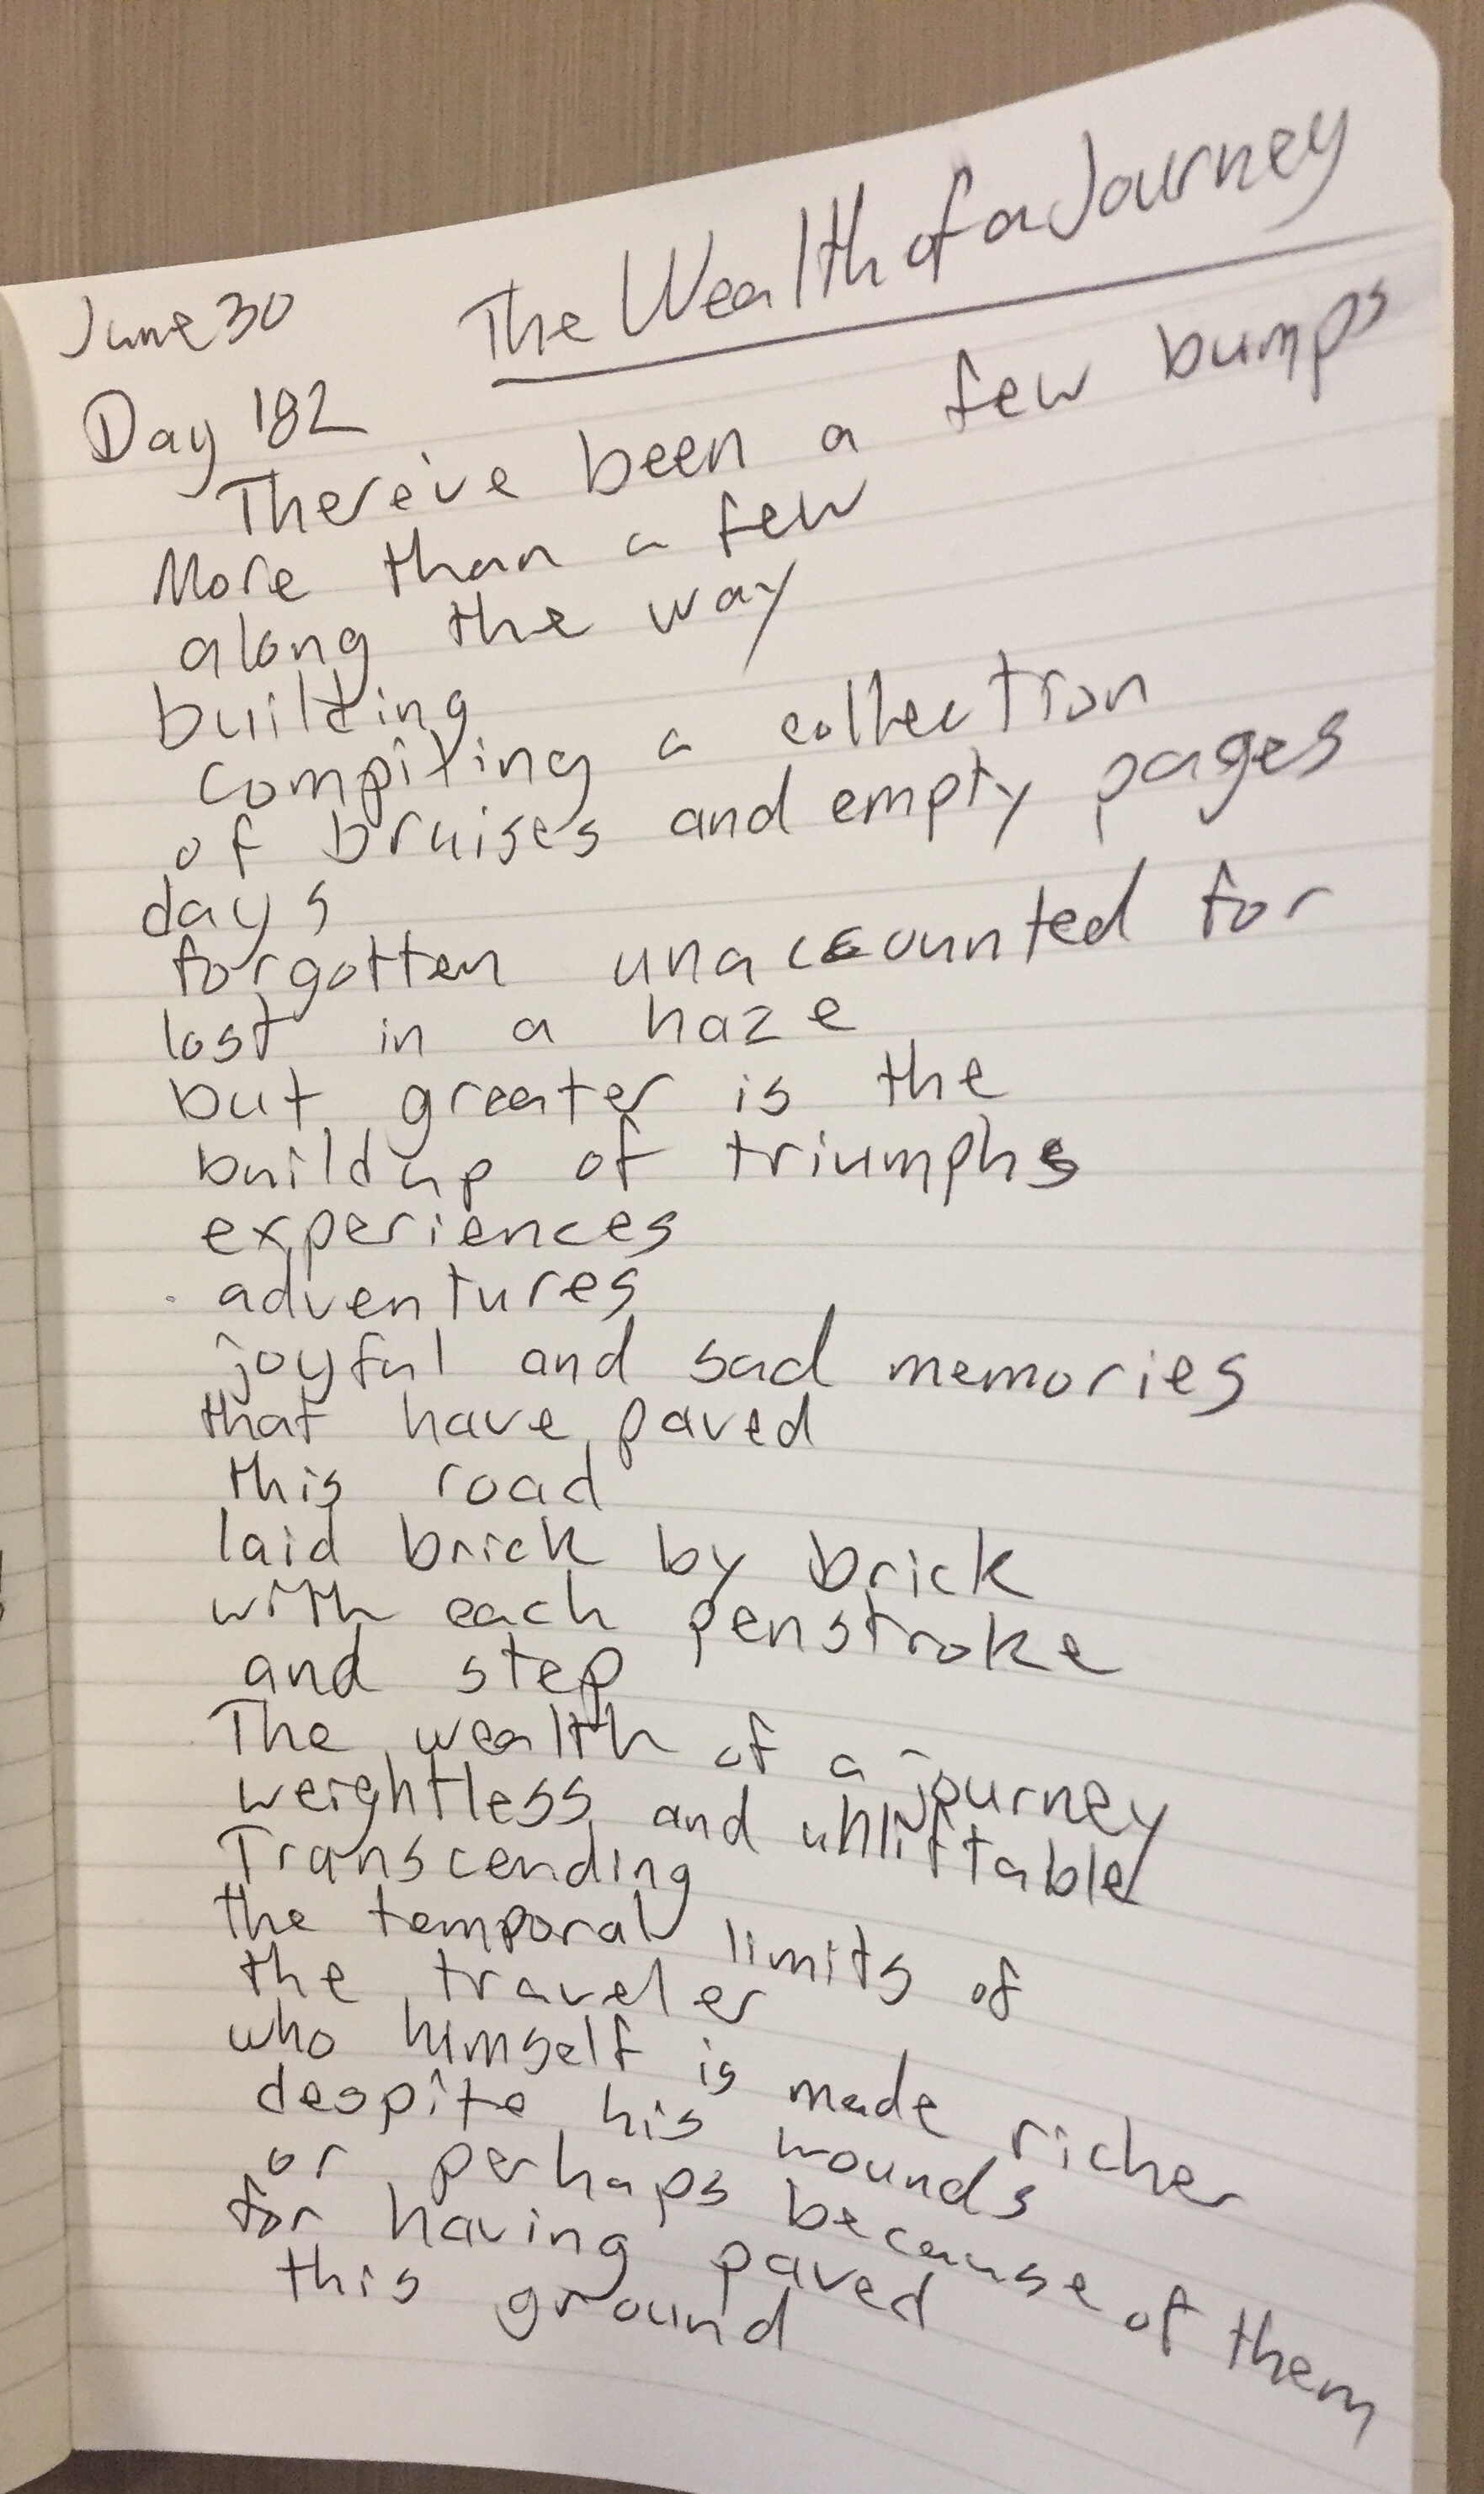 The Wealth of a Journey
June 30
Day 182
There've been a few bumps
More than a few
along the way
building
compiling a collection
of bruises and empty pages
days
forgotten unaccounted for
lost in a haze
but greater is the
buildup of triumphs
experiences
adventures
joyful and sad memories
that have paved
this road
laid brick by brick
with each penstroke
and step
The wealth of a journey
weightless and unliftable
Transcending
the temporal limits of
the traveler
who himself is made richer
despite his wounds
or perhaps because of them
for having paved
this ground